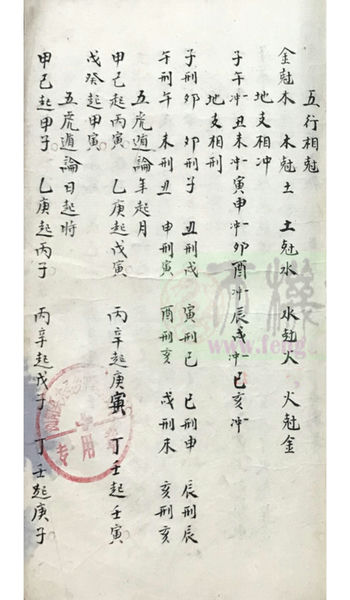 五行相尅
金尅木 木尅土 土尅水 水尅火 火尅金
地支相冲
子午冲 丑未冲 寅申冲 卯酉冲 辰戌冲 巳亥冲
地支相刑
子刑卯 卯刑子 丑刑戌 寅刑巳 巳刑申 辰刑辰
午刑午 未刑丑 申刑寅 酉刑亥 戌刑未 亥刑亥
五虎遁論年起月
甲己起丙寅 乙庚起戊寅 丙辛起庚寅 丁壬起壬寅
戊癸起甲寅
五虎遁論日起時
甲己起甲子 乙庚起丙子 丙辛起戊子 丁壬起庚子
专用
www.feng